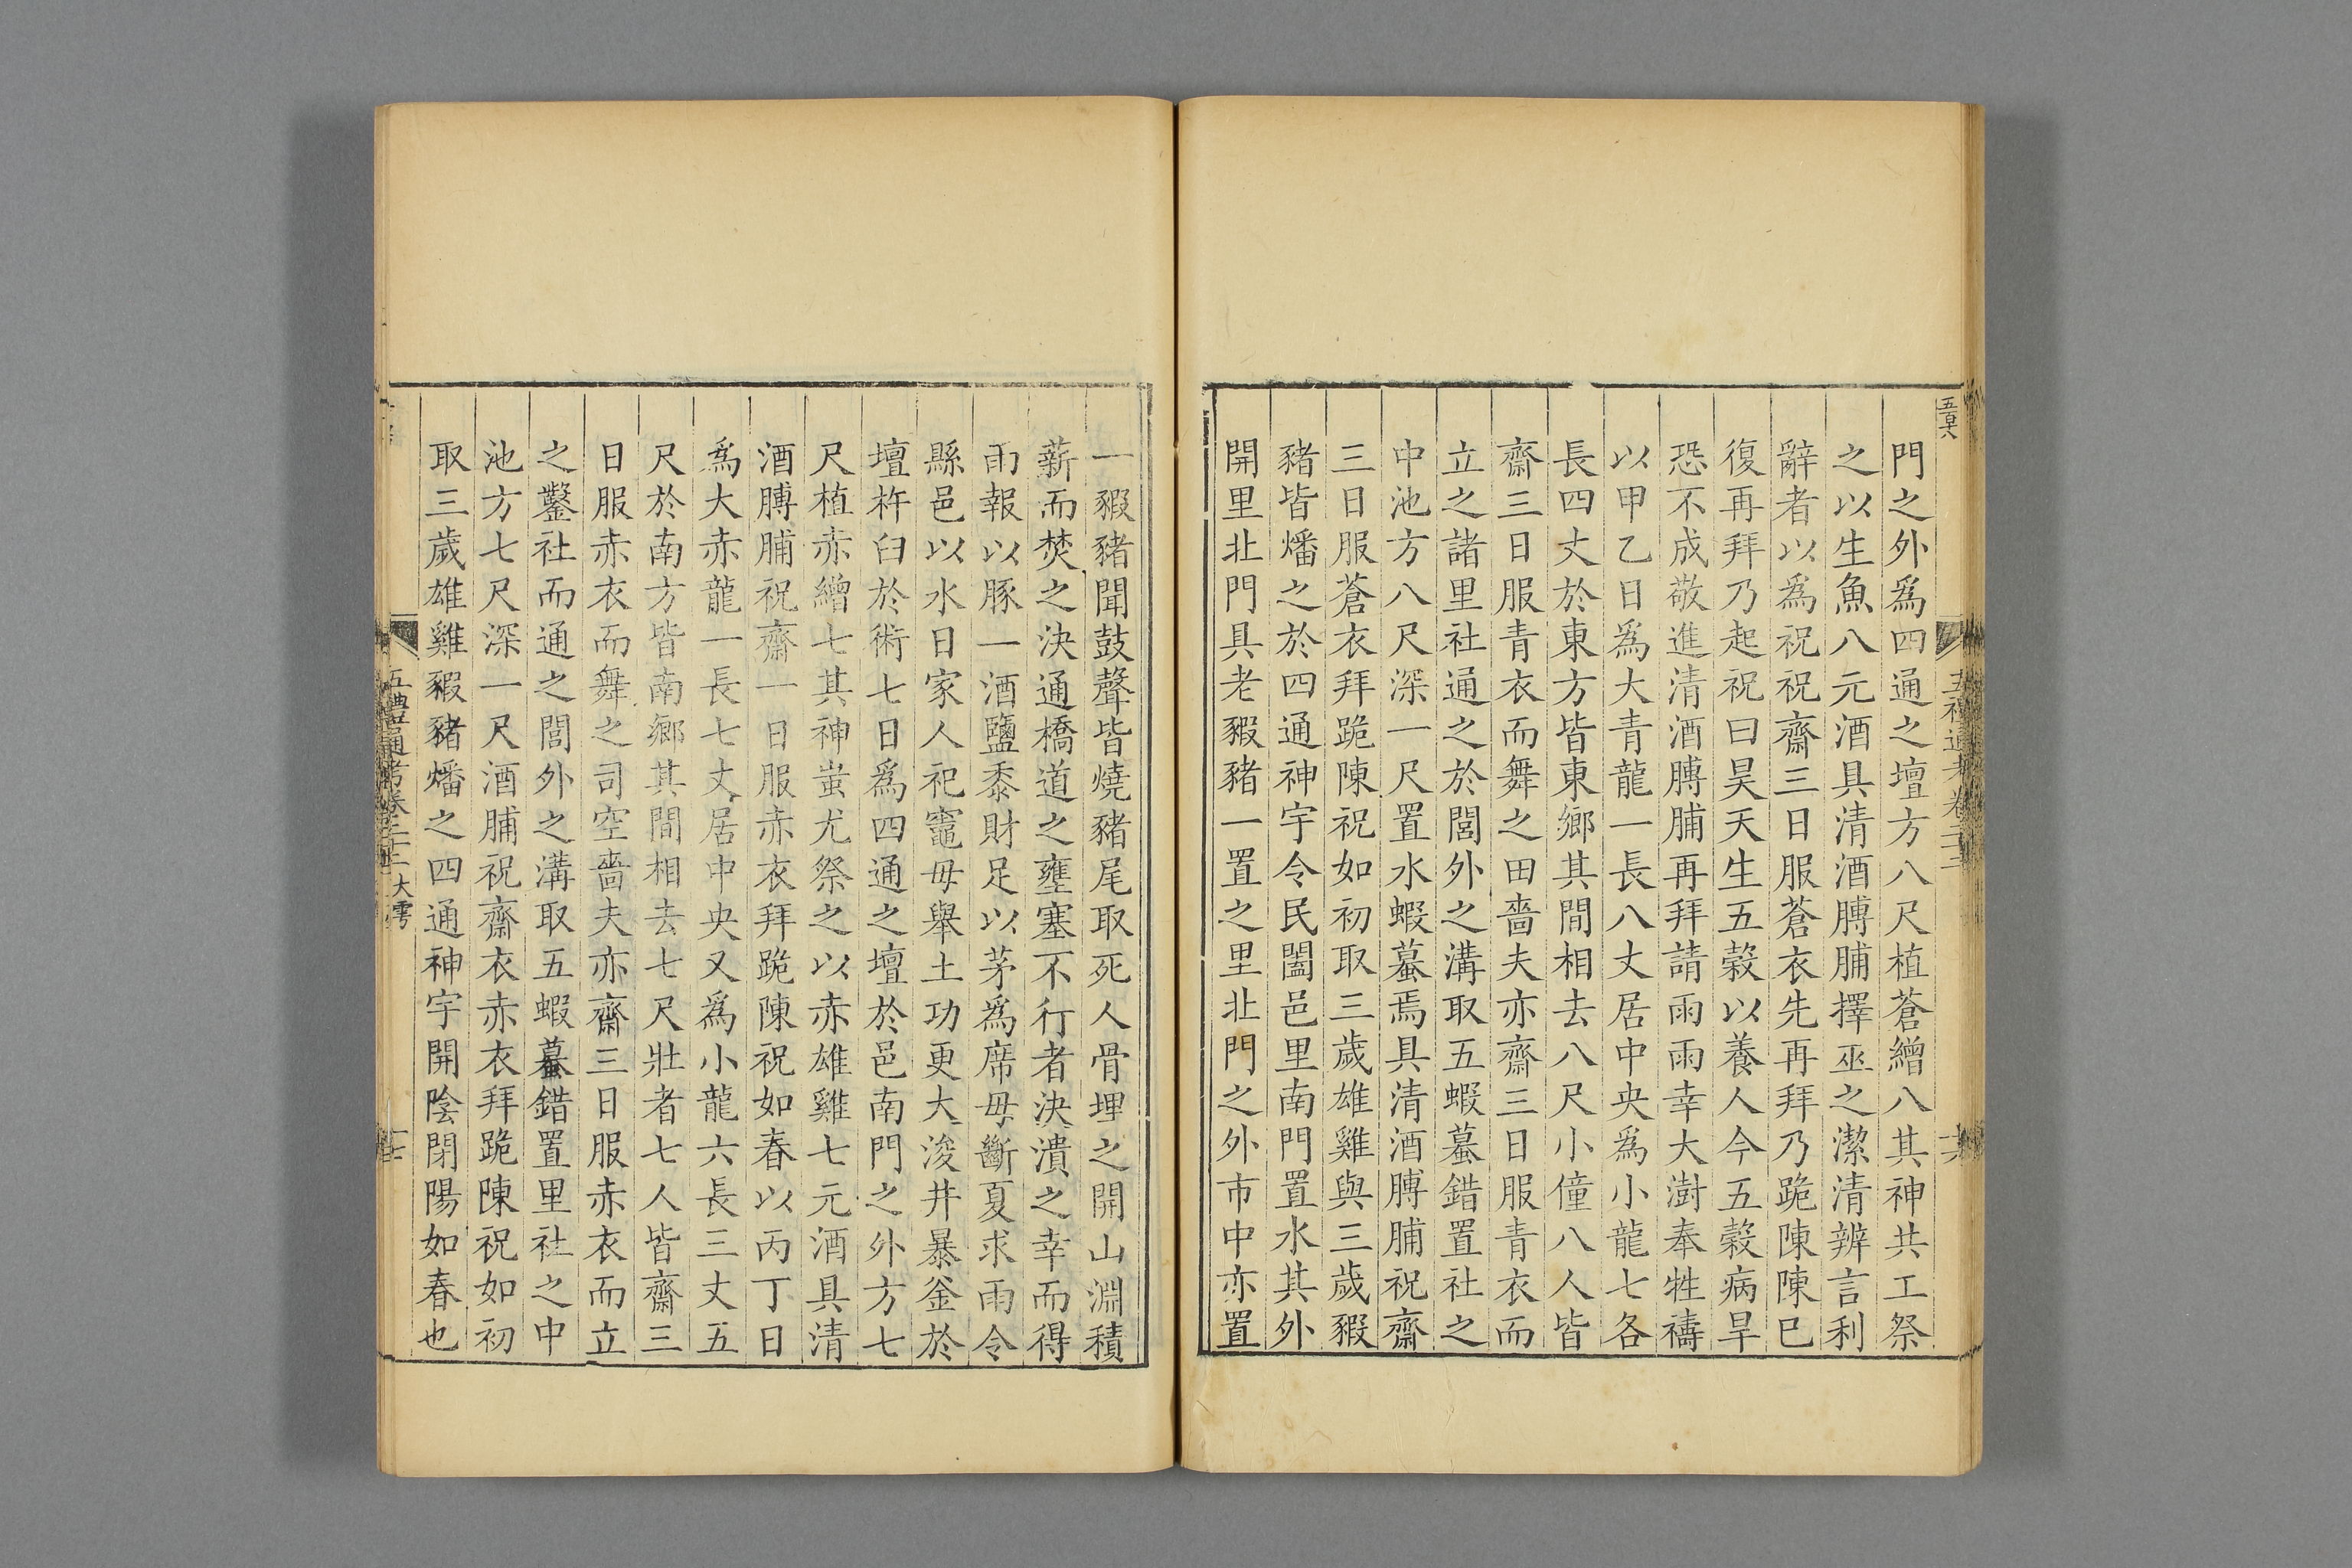 門之外爲四通之壇方八尺植蒼繒八其神共工祭
之以生魚八元酒具清酒膊脯擇巫之潔清辨言利
辭者以爲祝祝齋三日服蒼衣先再拜乃跪陳陳巳
復再拜乃起祝曰昊天生五穀以養人今五穀病旱
恐不成敬進清酒膊脯再拜請雨雨幸大澍奉牲禱
以甲乙日爲大青龍一長八丈居中央爲小龍七各
長四丈於東方皆東鄉其間相去八尺小僮八人皆
齋三日服青衣而舞之田嗇夫亦齋三日服青衣而
立之諸里社通之於閭外之溝取五蝦蟇錯置社之
中池方八尺深一尺置水蝦蟇焉具清酒膊脯祝齋
三日服蒼衣拜跪陳祝如初取三歲雄雞與三歲豭
豬皆燔之於四通神宇令民闔邑里南門置水其外
開里北門具老豭豬一置之里北門之外市中亦置
一豭豬聞鼓聲皆燒豬尾取死人骨埋之開山淵積
薪而焚之決通橋道之壅塞不行者決瀆之幸而得
雨報以豚一酒鹽黍財足以茅爲席毋斷夏求雨令
縣邑以水日家人祀竈毋舉土功更大浚井暴釜於
壇杵臼於術七日爲四通之壇於邑南門之外方七
尺植赤繒七其神蚩尤祭之以赤雄雞七元酒具清
酒膊脯祝齋一日服赤衣拜跪陳祝如春以丙丁日
爲大赤龍一長七丈居中央又爲小龍六長三丈五
尺於南方皆南鄉其間相去七尺壯者七人皆齋三
日服赤衣而舞之司空嗇夫亦齋三日服赤衣而立
之鑿社而通之閭外之溝取五蝦蟇錯置里社之中
池方七尺深一尺酒脯祝齋衣赤衣拜跪陳祝如初
取三歲雄雞豭豬燔之四通神宇開陰閉陽如春也
五禮通考卷二十二 大雩